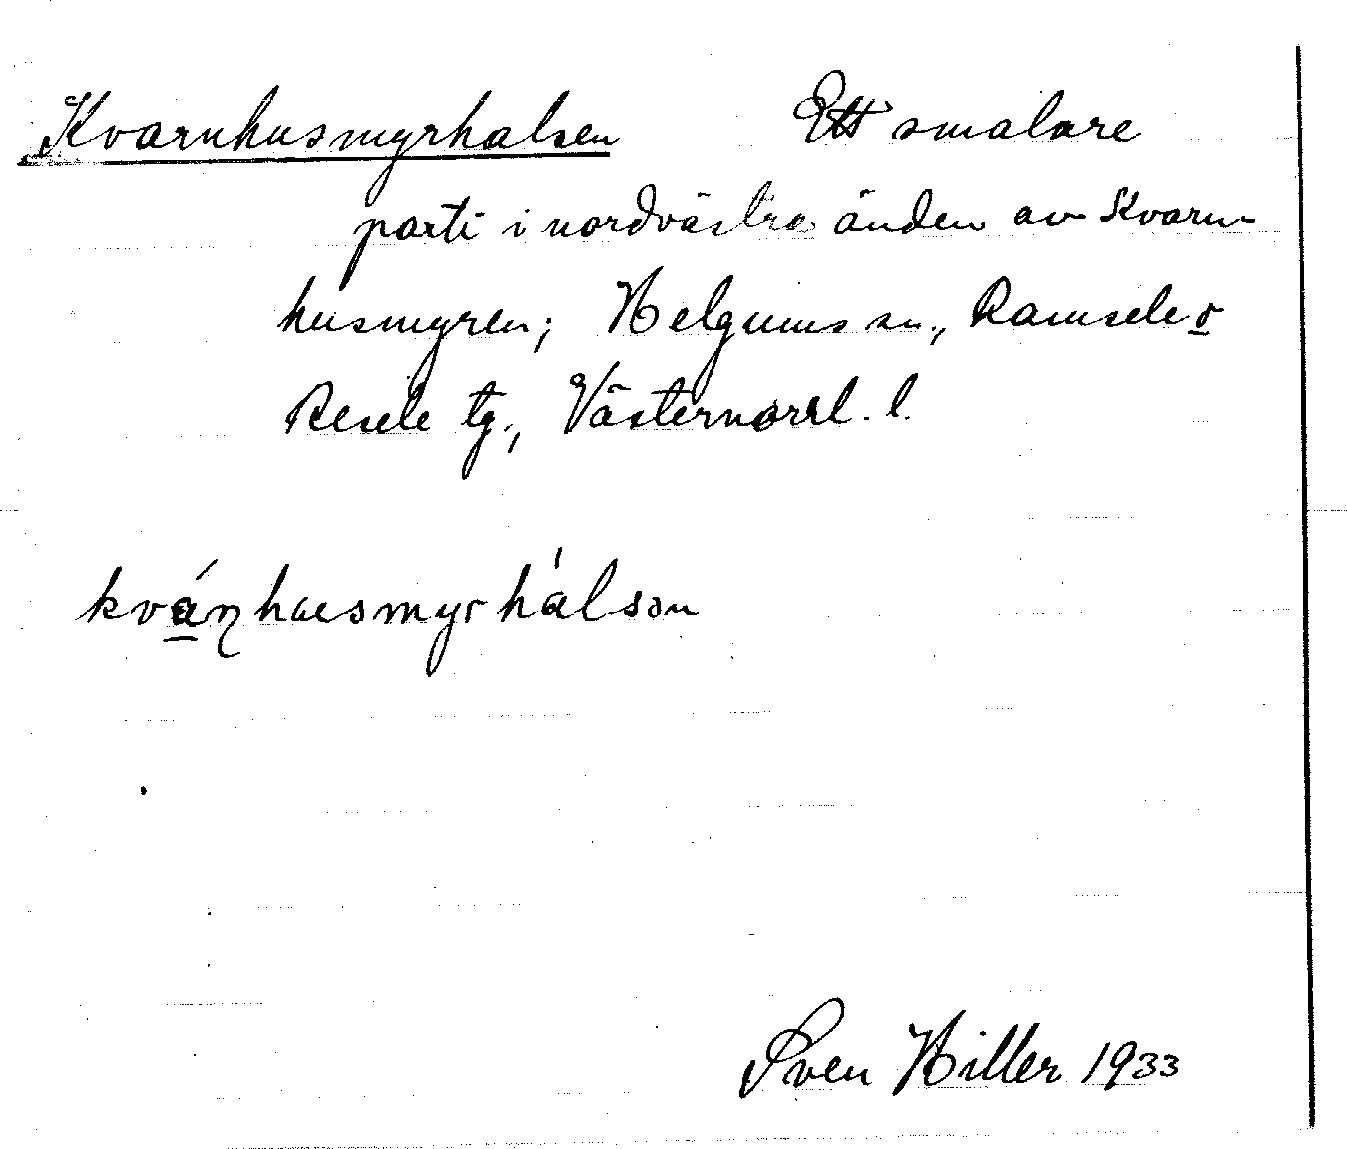 Kvarnhusmyrhalsen Ett smalare
parti i nordvästra änden av Kvarn-
husmyren; Helgums sn., Ramsele o
Resele tg., Västernorrl. l.
kváṇhusmyrhálsən
Sven Hiller 1933